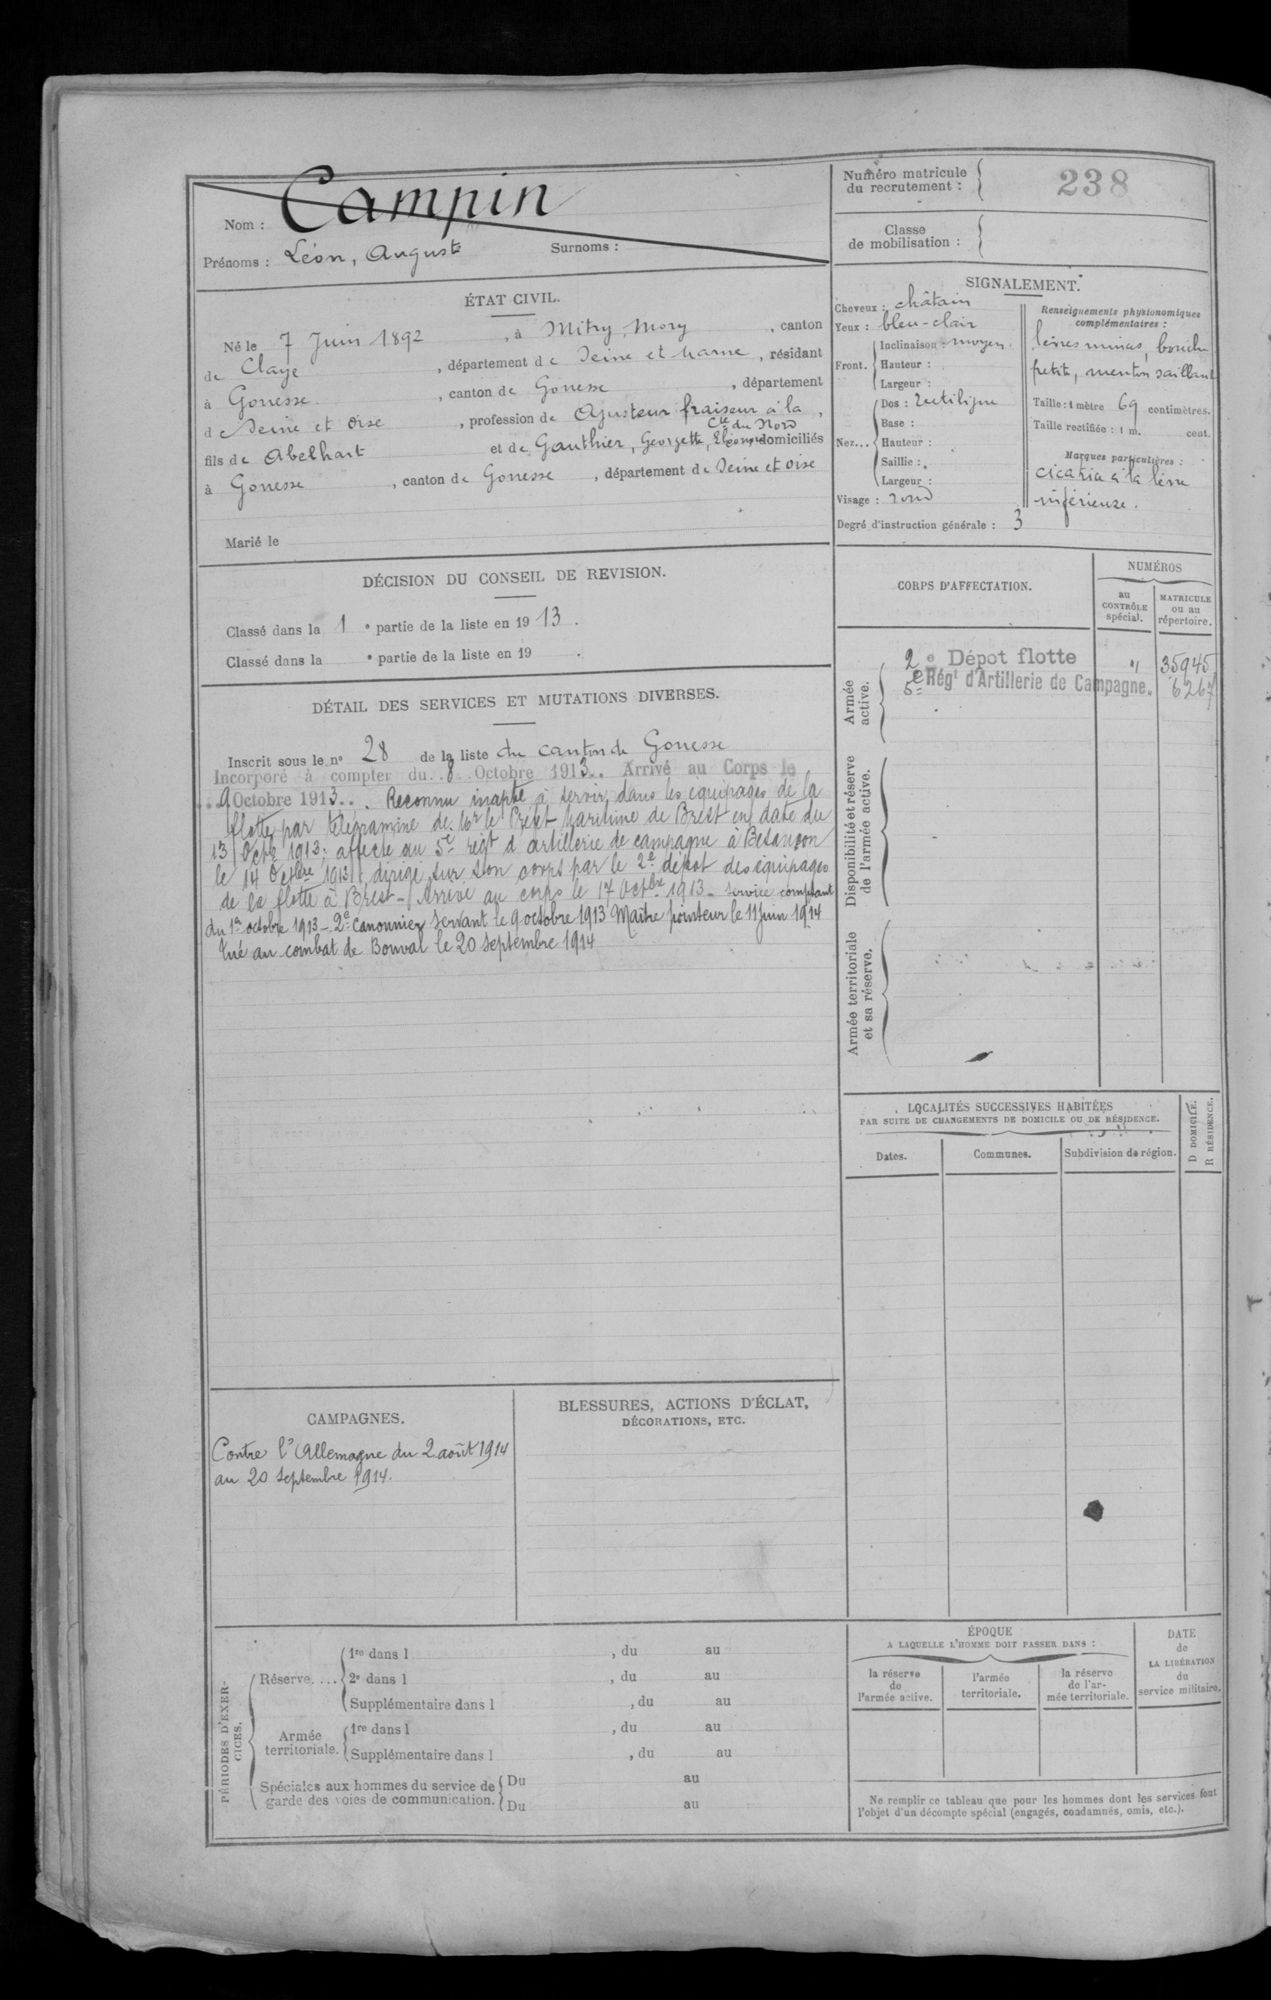 Nom : Campin
Prénoms : Léon, Auguste Surnoms :
Numéro matricule
du recrutement : 238
Classe
de mobilisation :
ÉTAT CIVIL.
Né le 7 Juin 1892, à Mitry, Mory, canton
de Claye, département de Seine et Marne, résidant
à Gonesse, canton de Gonesse, département
d Seine et Oise, profession de Ajusteur fraiseur à la
Cie du Nord
fils de Abelhart et de Gauthier, Georgette, domiciliés
à Gonesse, canton de Gonesse, département de Seine et Oise
Marié le
SIGNALEMENT.
Cheveux : châtain
Yeux : bleu-clair
Front. Inclinaison : moyen.
Hauteur :
Largeur :
Nez... Dos : rectiligne
Base :
Hauteur :
Saillie :
Largeur :
Visage : rond
Renseignements physionomiques
complémentaires :
lèvres minces, bouche
petite, menton saillant
Taille : 1 mètre 69 centimètres.
Taille rectifiée : 1 m. cent.
Marques particulières :
cicatrice à la lèvre
inférieure.
Degré d'instruction générale : 3
DÉCISION DU CONSEIL DE REVISION.
Classé dans la 1 e partie de la liste en 1913.
Classé dans la e partie de la liste en 19 .
DÉTAIL DES SERVICES ET MUTATIONS DIVERSES.
Inscrit sous le n° 28 de la liste du canton de Gonesse
Incorporé à compter du 8 Octobre 1913.. Arrivé au Corps le
9 Octobre 1913... Reconnu inapte à servir dans les équipages de la
flotte par télégramme de Mr le Préfet Maritime de Brest en date du
13 Octbre 1913; affecté au 5e régt d'artillerie de campagne à Besançon
le 14 Octbre 1913; dirigé sur son corps par le 2e dépôt des équipages
de la flotte à Brest - Arrivé au corps le 17 Octbre 1913 - service comptant
du 1er octobre 1913 - 2e Canonnier servant le 9 octobre 1913 Maître pointeur le 11 Juin 1914
Tué au combat de Bonval le 20 septembre 1914
CORPS D'AFFECTATION.
NUMÉROS
au
CONTRÔLE
spécial.
MATRICULE
ou au
répertoire.
Armée
active.
2e Dépôt flotte " 35945
5e Régt d'Artillerie de Campagne. 6267
Disponibilité et réserve
de l'armée active.
Armée territoriale
et sa réserve.
LOCALITÉS SUCCESSIVES HABITÉES
PAR SUITE DE CHANGEMENTS DE DOMICILE OU DE RÉSIDENCE.
Dates. Communes. Subdivision de région.
D DOMICILE.
R RÉSIDENCE.
CAMPAGNES.
Contre l'Allemagne du 2 août 1914
au 20 septembre 1914.
BLESSURES, ACTIONS D'ÉCLAT,
DÉCORATIONS, ETC.
PÉRIODES D'EXER-
CICES.
Réserve.... 1re dans l , du au
2e dans l , du au
Supplémentaire dans l , du au
Armée
territoriale. 1re dans l , du au
Supplémentaire dans l , du au
Spéciales aux hommes du service de
garde des voies de communication. Du au
Du au
ÉPOQUE
A LAQUELLE L'HOMME DOIT PASSER DANS :
la réserve
de
l'armée active.
l'armée
territoriale.
la réserve
de l'ar-
mée territoriale.
DATE
de
LA LIBÉRATION
du
service militaire.
Ne remplir ce tableau que pour les hommes dont les services font
l'objet d'un décompte spécial (engagés, condamnés, omis, etc.).